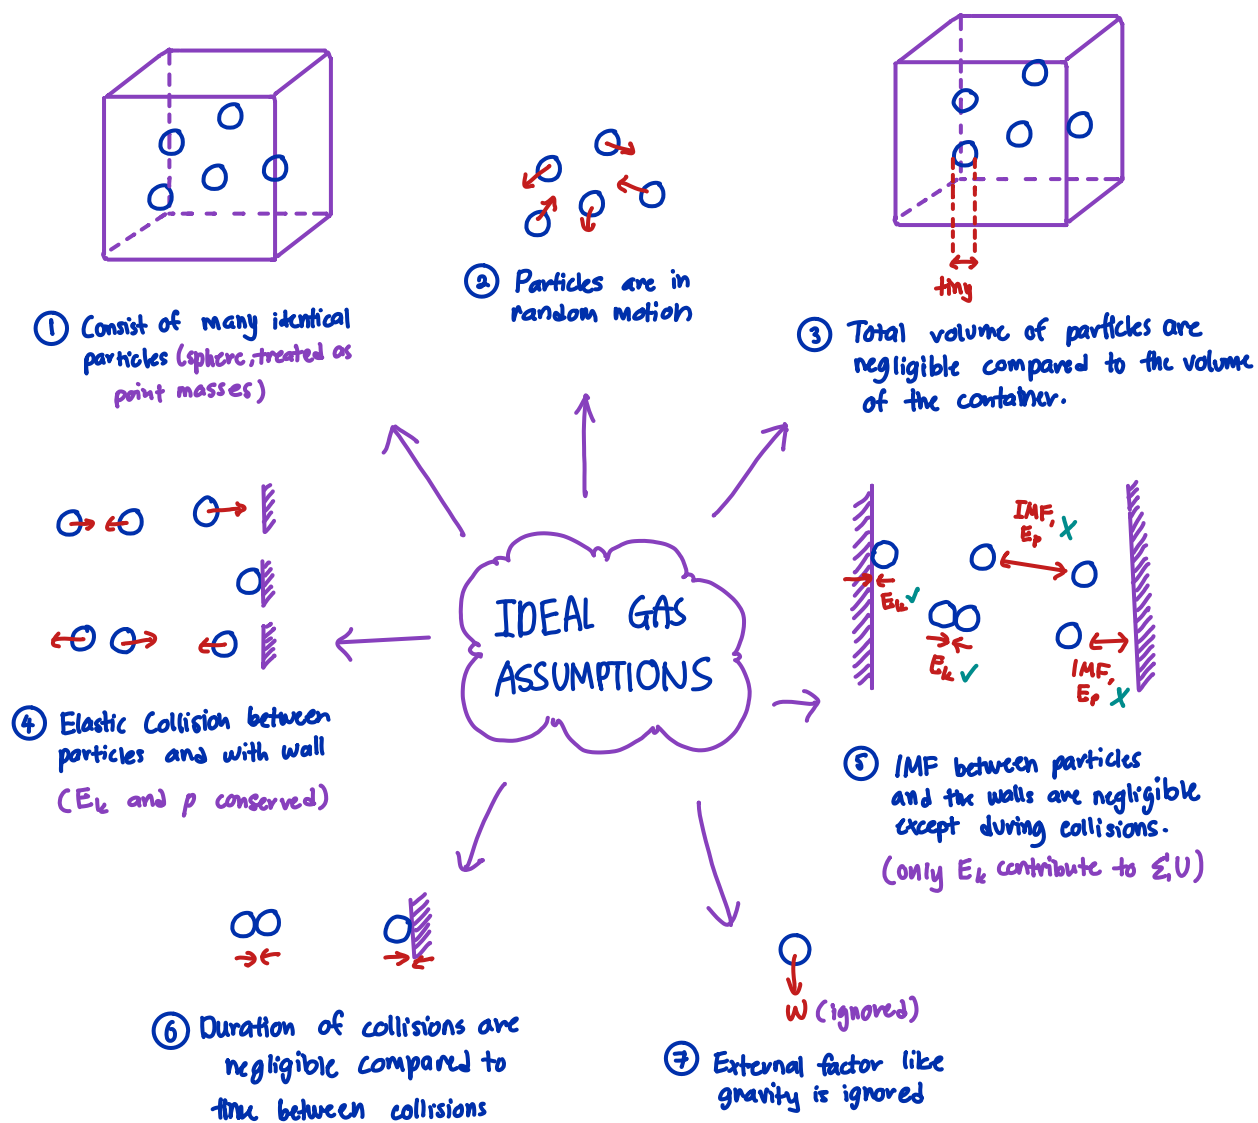 tiny
① Consist of many identical
particles (sphere, treated as
point masses)
② Particles are in
random motion
③ Total volume of particles are
negligible compared to the volume
of the container.
IDEAL GAS
ASSUMPTIONS
④ Elastic Collision between
particles and with wall
(Eₖ and p conserved)
IMF,
Eₚ ✗
Eₖ ✓
Eₖ ✓
IMF,
Eₚ ✗
⑤ IMF between particles
and the walls are negligible
except during collisions.
(only Eₖ contribute to ΣU)
⑥ Duration of collisions are
negligible compared to
time between collisions
W (ignored)
⑦ External factor like
gravity is ignored